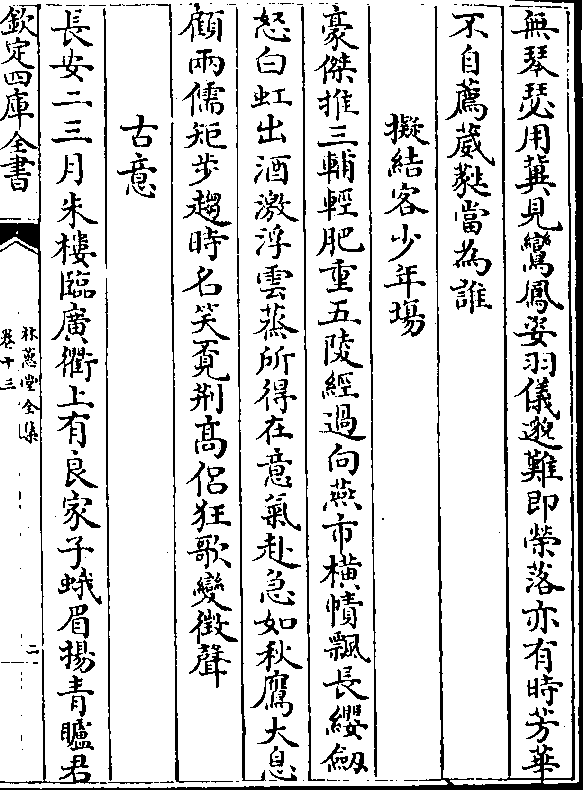 無琴瑟用冀見鸞鳳姿羽儀邈難即榮落亦有時芳華
不自薦葳蕤當為誰
擬結客少年塲
豪傑推三輔輕肥重五陵經過向燕市橫幘飄長纓劔
怒白虹出酒激浮雲蒸所得在意氣赴急如秋鷹大息
顧兩儒矩步趨時名笑覔荆髙侣狂歌變徵聲
古意
長安二三月朱樓臨廣衢上有良家子蛾眉揚青矑君
欽定四庫全書
林蕙堂全集
卷十三
二